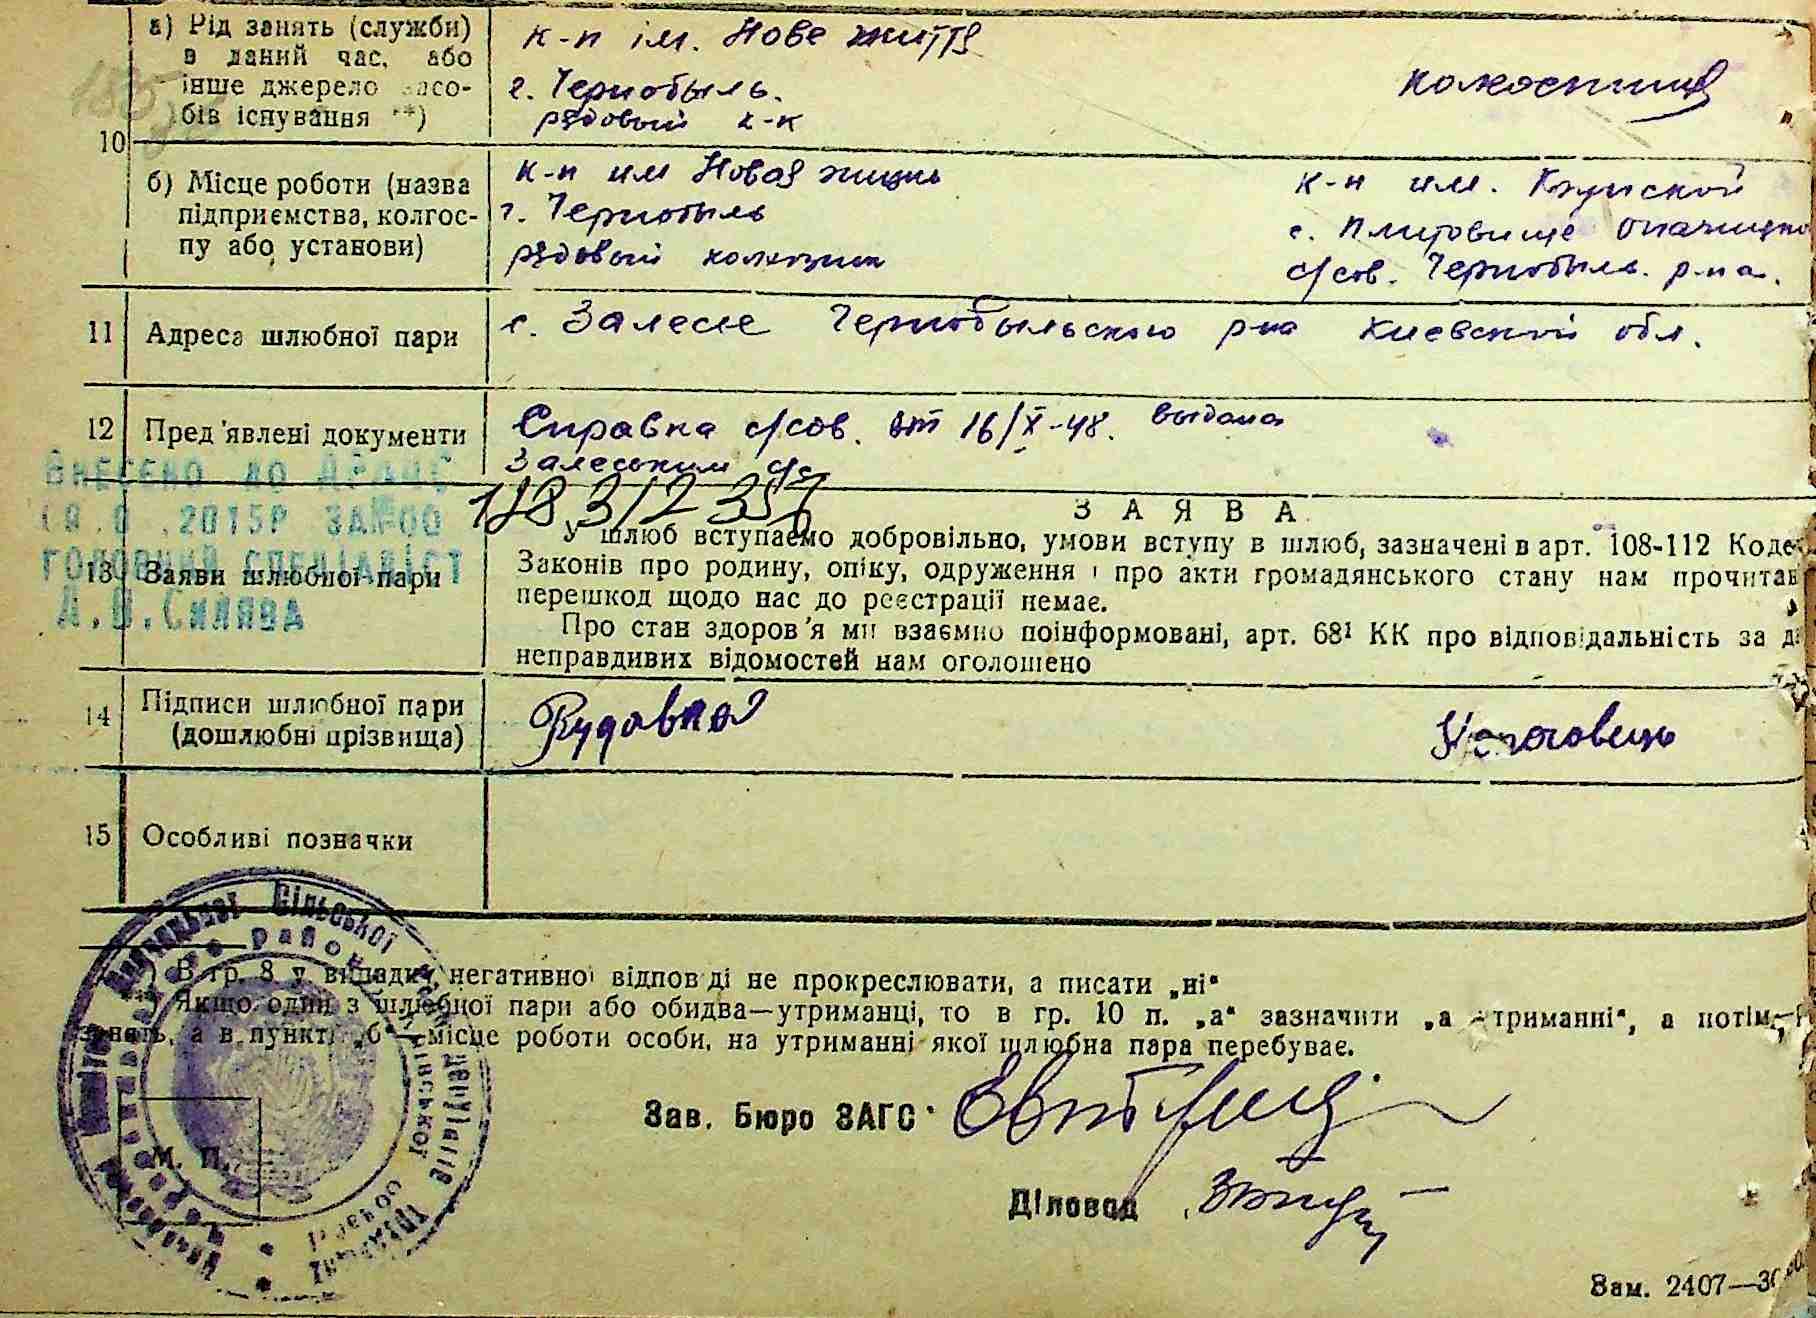 10
а) Рід занять (служби)
в даний час, або
інше джерело засо-
бів існування **)
к-п ім. Нове життя
г. Чернобыль.
рядовый к-к
колхозница
б) Місце роботи (назва
підприємства, колгос-
пу або установи)
к-п им Новая жизнь
г. Чернобыль
рядовый колхозник
к-п им. Крупской
с. Плитовище Опачицко
с/сов. Чернобыль. р-на.
11 Адреса шлюбної пари
с. Залесье Чернобыльского р-на Киевской обл.
12 Пред'явлені документи
Справка с/сов. от 16/X-48. выдана
Залеським с/с
Внесено до ДРАЦС
2015р
головний спеціаліст
13 Заяви шлюбної пари
ЗАЯВА
У шлюб вступаємо добровільно, умови вступу в шлюб, зазначені в арт. 108-112 Коде
Законів про родину, опіку, одруження і про акти громадянського стану нам прочитан
перешкод щодо нас до реєстрації немає.
Про стан здоров'я ми взаємно поінформовані, арт. 68¹ КК про відповідальність за д
неправдивих відомостей нам оголошено
14 Підписи шлюбної пари
(дошлюбні прізвища)
15 Особливі позначки
*) В гр. 8 у випадку негативної відповіді не прокреслювати, а писати „ні“
**) Якщо один з шлюбної пари або обидва—утриманці, то в гр. 10 п. „а“ зазначити „а утриманні“, а потім
занять, а в пункті „б“ — місце роботи особи, на утриманні якої шлюбна пара перебуває.
Зав. Бюро ЗАГС
М. П.
Діловод
Зам. 2407—30